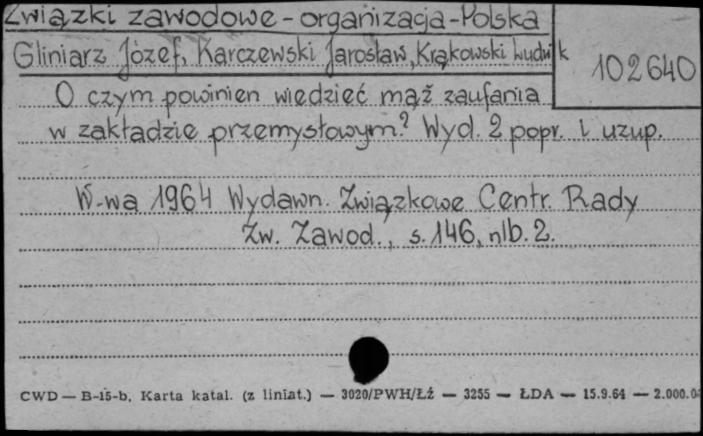 Związki zawodowe - organizacja - Polska
Gliniarz Józef, Karczewski Jarosław, Krąkowski Ludwik
102640
O czym powinien wiedzieć mąż zaufania
w zakładzie przemysłowym? Wyd. 2 popr. i uzup.
W-wa 1964 Wydawn. Związkowe Centr. Rady
Zw. Zawod., s. 146, nlb. 2.
CWD — B-15-b. Karta katal. (z liniat.) — 3020/PWH/Łź — 3255 — ŁDA — 15.9.64 — 2.000.0